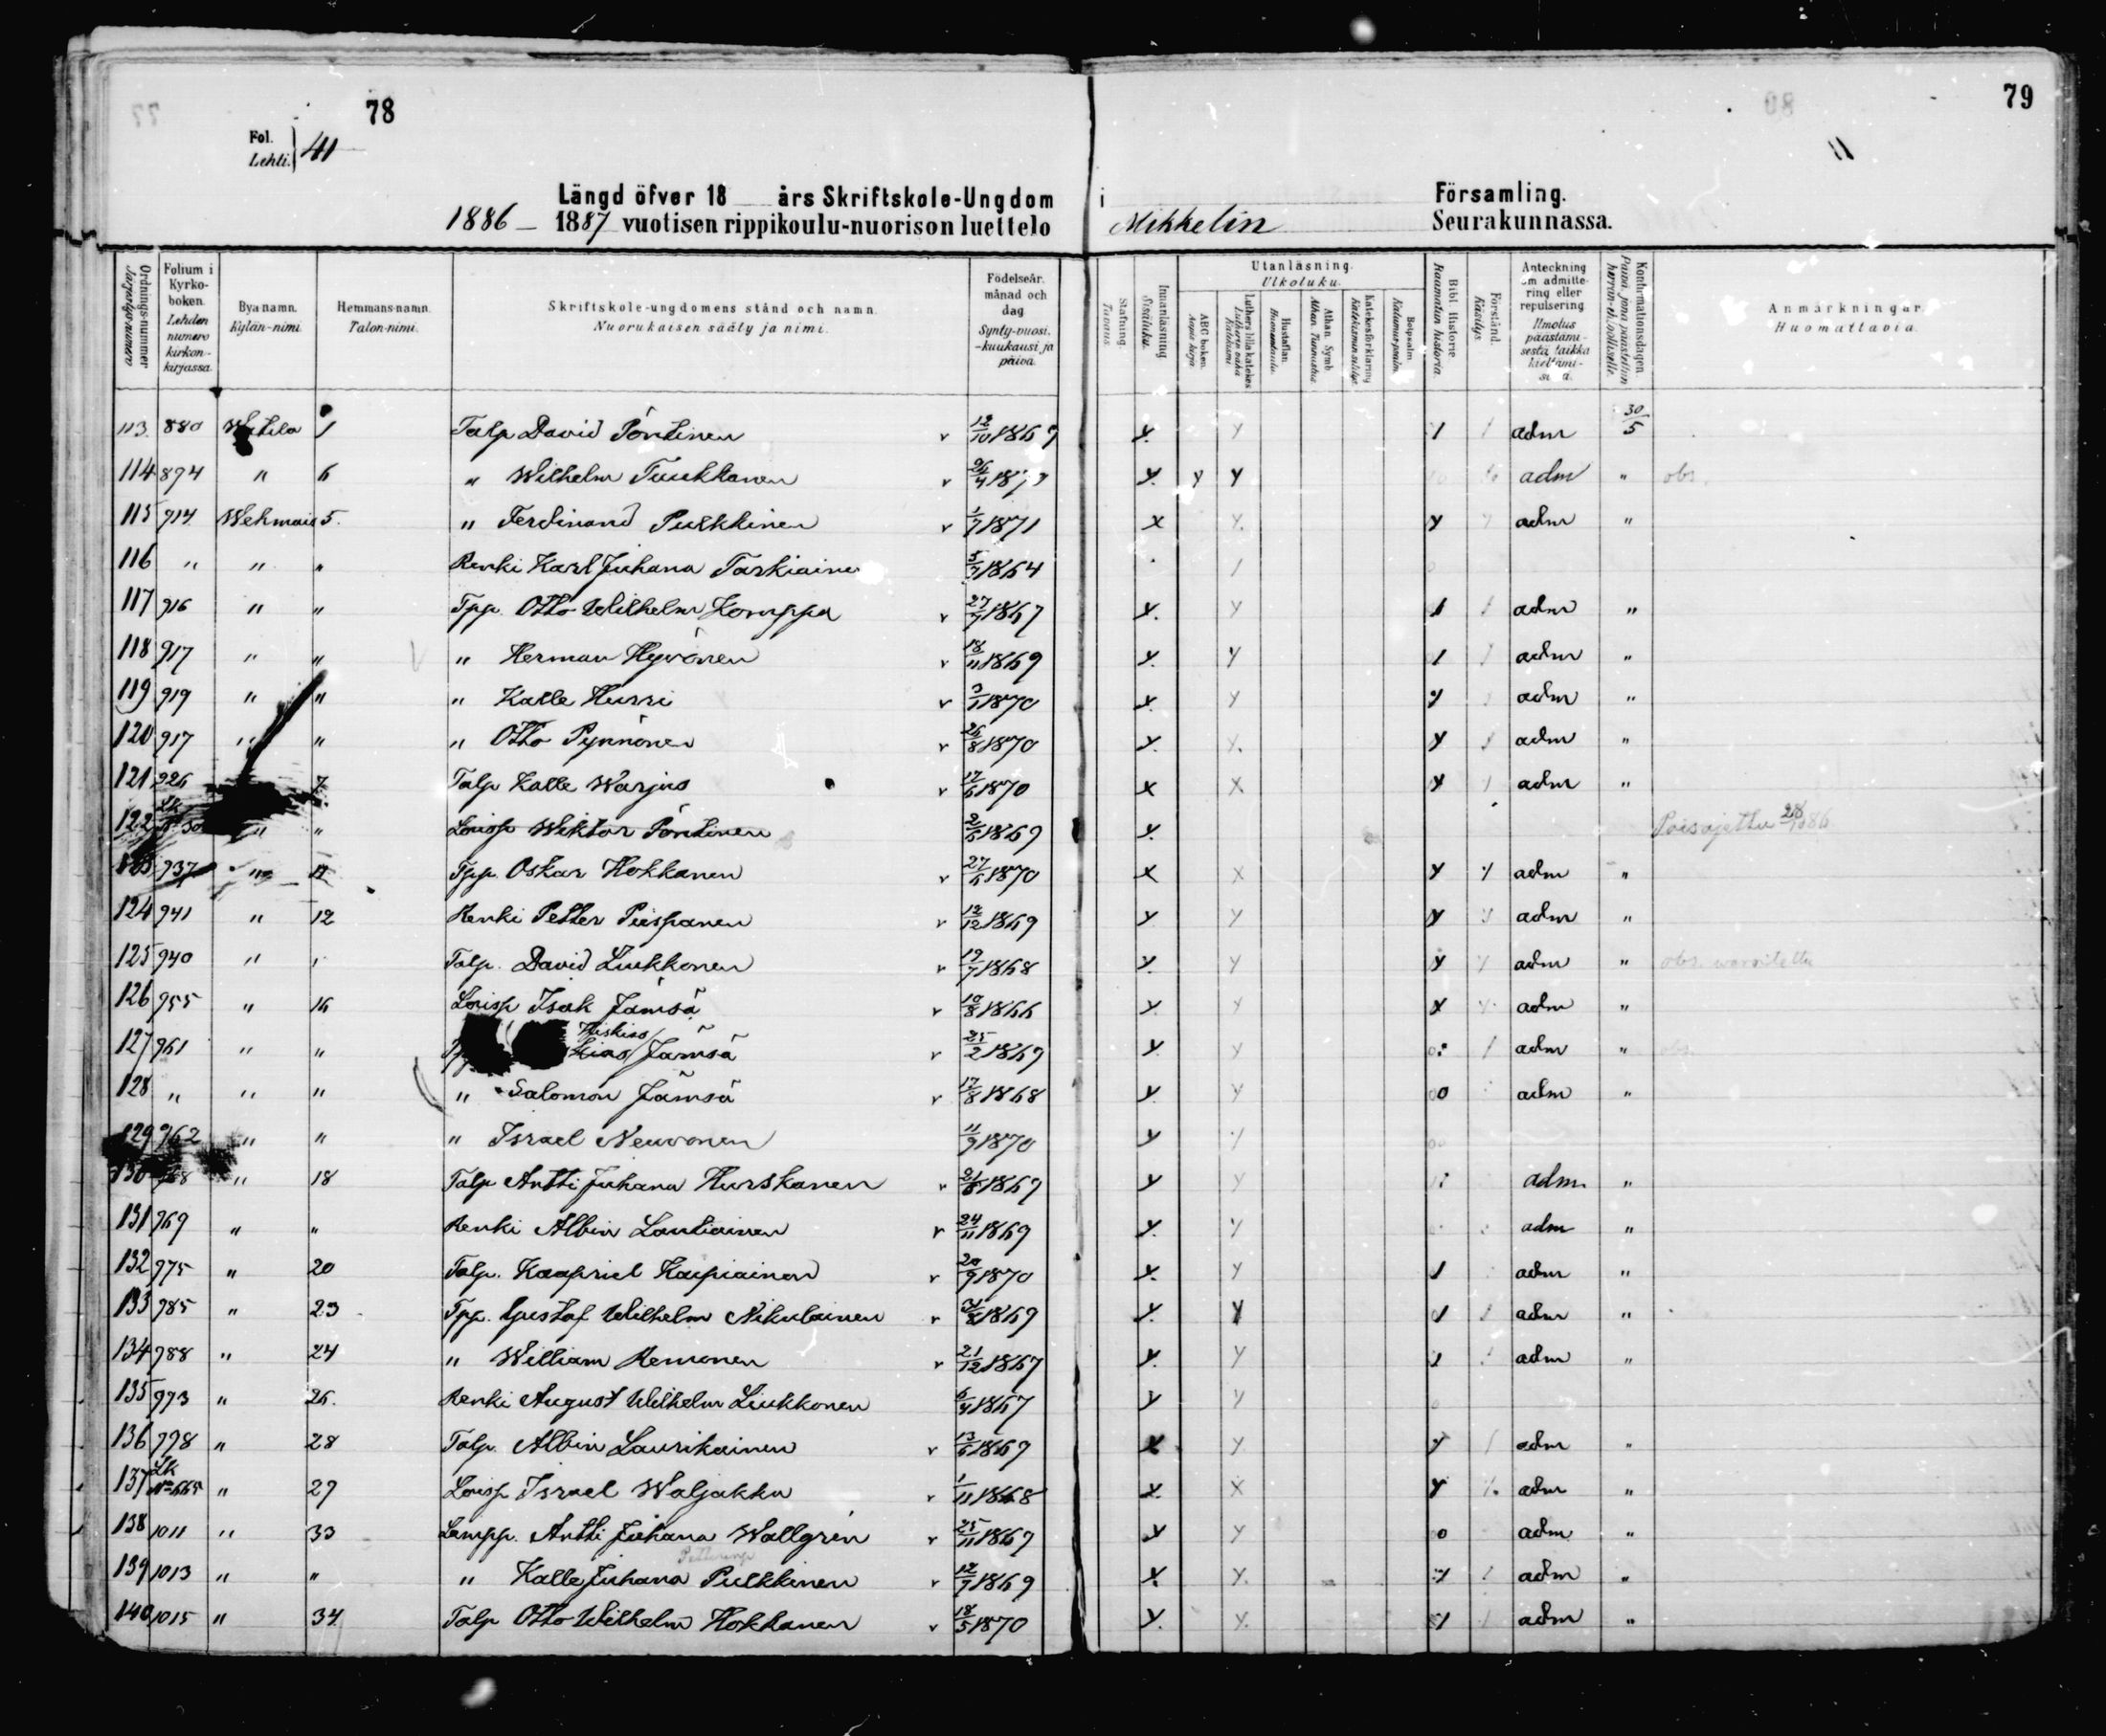 78
79
Fol.
Lehti. 41
Längd öfver 18 års Skriftskole-Ungdom i Församling.
1886 – 1887 vuotisen rippikoulu-nuorison luettelo Mikkelin Seurakunnassa.
Ordnings-nummer Järjestys-numero
Folium i Kyrko-boken. Lehden numero kirkon-kirjassa.
Bya namn. Kylän-nimi.
Hemmans-namn. Talon-nimi.
Skriftskole-ungdomens stånd och namn. Nuorukaisen sääty ja nimi.
Födelseår. månad och dag Synty-vuosi. -kuukausi ja päivä.
Stafning. Tavaus.
Innanläsning Sisäluku.
Utanläsning. Ulkoluku.
ABC boken. Aapis kirja
Luthers lilla katekes Lutherin vähä Katekismi
Hustaflan. Huoneentaulu.
Athan. Symb. Athan. Tunnustus.
Katekesförklaring Katekismun selitys
Botpsalm. Katumus-psalm.
Bibl. Historie Raamatun historia.
Förstånd. Käsitys.
Anteckning om admitte-ring eller repulsering Ilmoitus päästämi-sestä taikka
Konfirmationsdagen Päivä, jona päästettiin herran-ehtoolliselle.
Anmärkningar. Huomattavia.
113. 880 1 Talp David Pöntinen v 12/10 1869 y. y 1 1 adm 30/5
114 874 " 6 " Wilhelm Tuukkanen v y. y y adm " obs.
115 914 Wehmais 5. " Ferdinand Pulkkinen v 1/7 1871 x y. y y adm "
116 " " " Renki Karl Juhana Tarkiaine 5/7 1864 1
117 916 " " Tpp. Otto Wilhelm Komppa v 27/7 1867 y. y 1 1 adm "
118 917 " " " Herman Hyvönen v 18/11 1869 y. y 1 1 adm "
119 919 " " " Kalle Hurri v 3/1 1870 y. y y adm "
120 917 " " " Otto Pynnönen v 26/8 1870 y. y. y 1 adm "
121 926 7 Talp Kalle Warjus v 17/6 1870 x x y 1 adm "
122 Lk " " Loisp Wiktor Pöntinen 2/5 1869 y. Poisajettu
937 " Tpp. Oskar Hokkanen v 27/6 1870 x x y y adm "
124 941 " 12 Renki Petter Piispanen v 12/12 1869 y y y y adm "
125 940 " Talp. David Liukkonen v 19/7 1868 y. y y y adm " obs. waroitettu
126 955 " 16 Loisp Isak Jämsä v 10/8 1866 y. y x y adm "
127 961 " " Hiskias Jämsä v 25/2 1869 y. y 1 adm " obs.
128 " " " " Salomon Jämsä v 17/8 1868 y. y 0 adm "
129 962 " " " Israel Neuvonen 11/9 1870 y y
130 " 18 Talp Antti Juhana Hurskanen v 1869 y y adm. "
131 969 " " Renki Albin Lautiainen v 24/11 1869 y. y adm "
132 975 " 20 Talp. Kaapriel Karpiainen v 20/9 1870 y. y 1 adm "
133 985 " 23 Tpp. Gustaf Wilhelm Nikulainen v 1869 y. y 1 1 adm "
134 988 " 24 " William Remonen v 21/12 1867 y. y 1 1 adm "
135 993 " 26. Renki August Wilhelm Liukkonen 6/4 1867 y y
136 998 " 28 Talp. Albin Laurikainen v 13/6 1869 x y y 1 adm "
137 Lk No 665 " 29 Loisp Israel Waljakka v 1/11 1868 x x y adm "
138 1011 " 33 Lampp. Antti Juhana Wallgrén v 25/11 1869 y y 0 adm "
139 1013 " " " Kalle Juhana Pulkkinen v 12/9 1869 x y. y 1 adm "
140 1015 " 34 Talp Otto Wilhelm Hokkanen v 18/5 1870 y. y. y 1 adm "